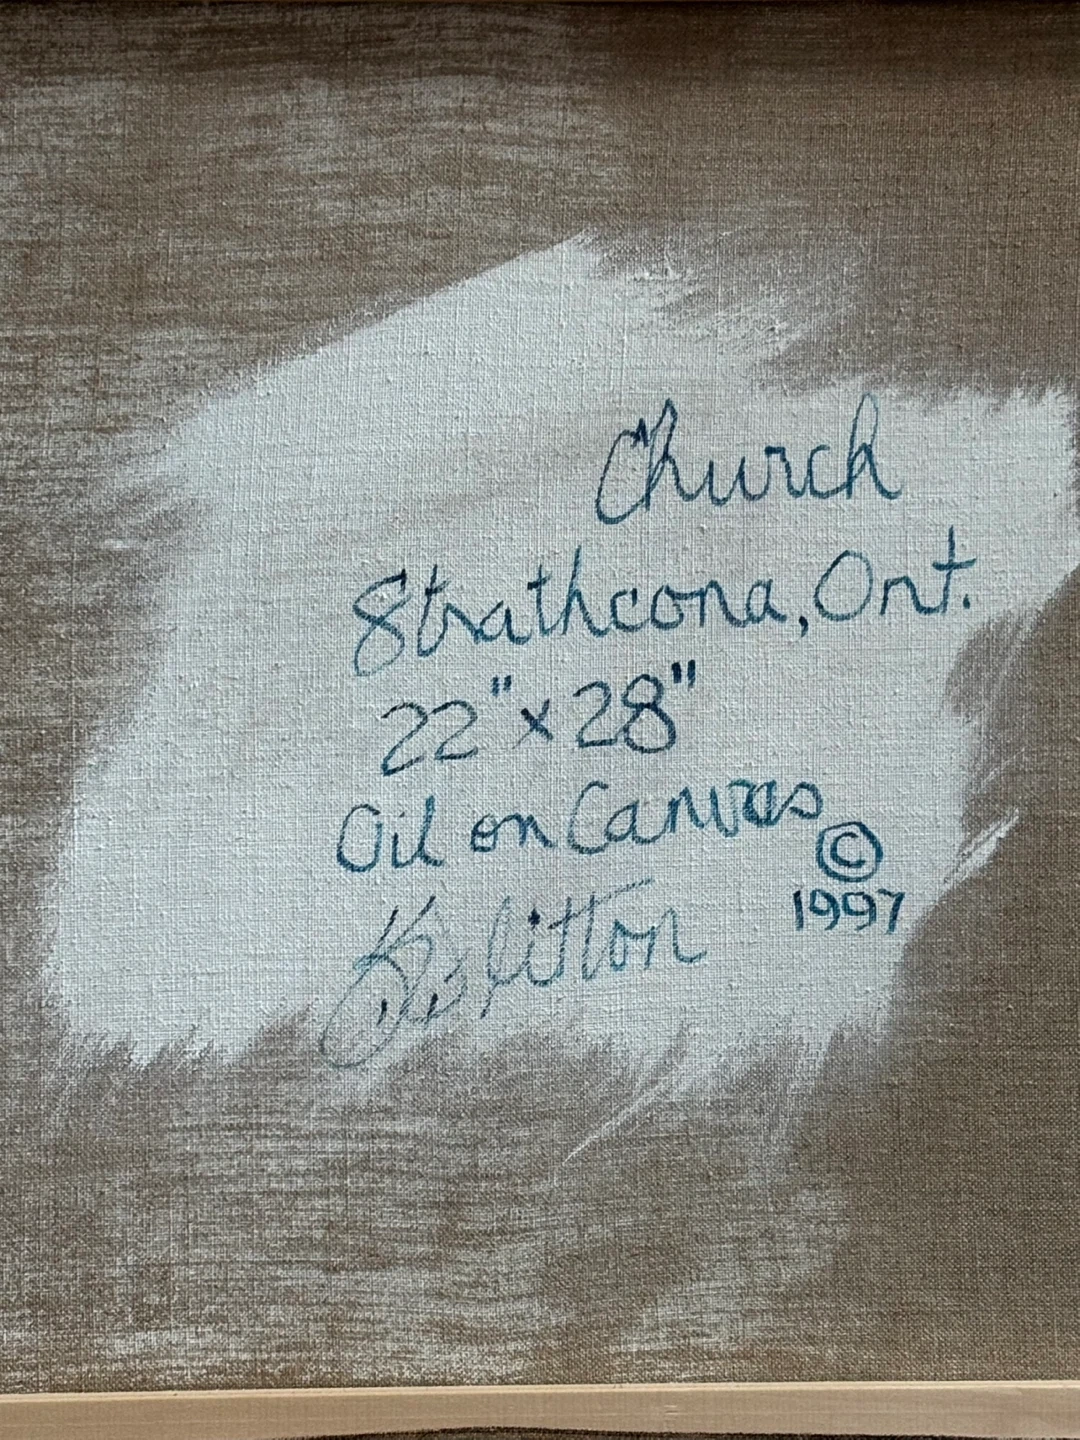 Church
Strathcona, Ont.
22" x 28"
Oil on Canvas
©
1997